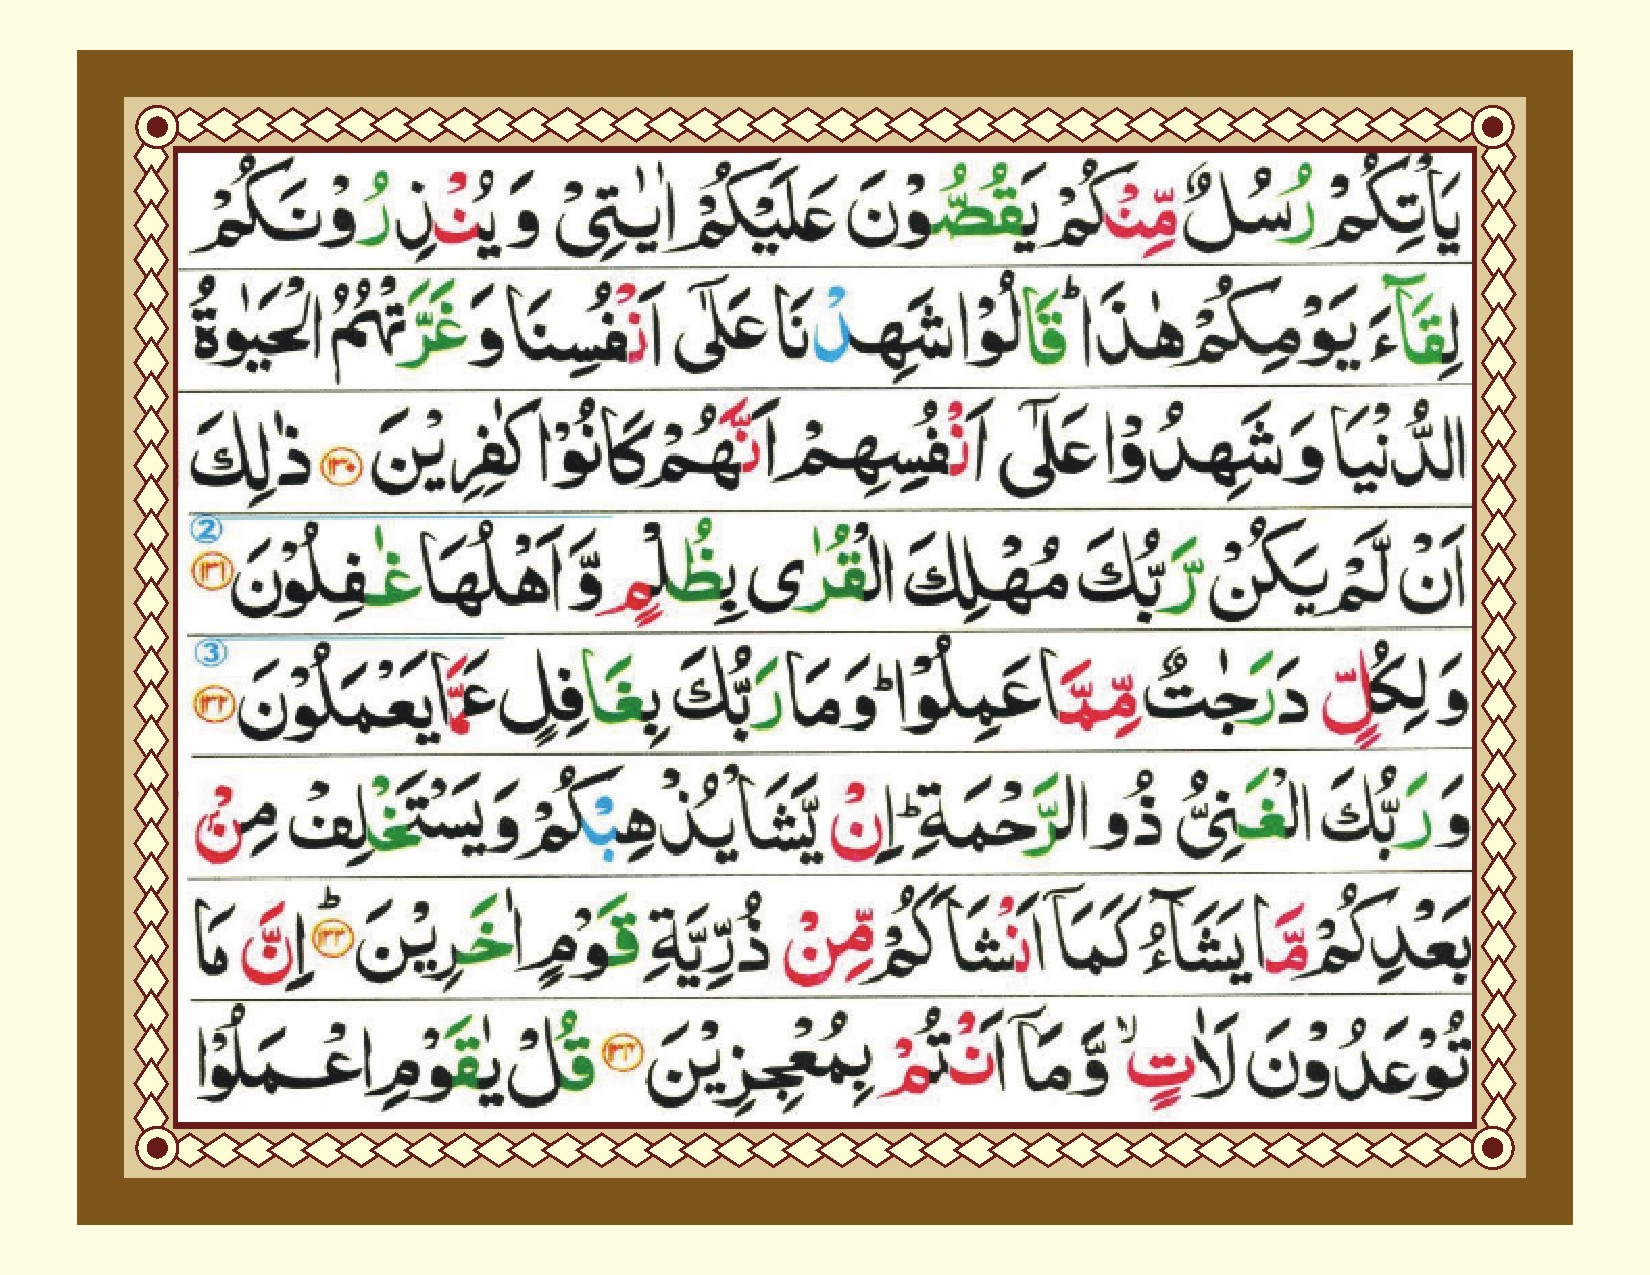 يَاْتِكُمْ رُسُلٌ مِّنْكُمْ يَقُصُّوْنَ عَلَيْكُمْ اٰيٰتِىْ وَ يُنْذِرُوْنَكُمْ
لِقَآءَ يَوْمِكُمْ هٰذَا ؕ قَالُوْا شَهِدْنَا عَلٰٓى اَنْفُسِنَا وَ غَرَّتْهُمُ الْحَيٰوةُ
الدُّنْيَا وَ شَهِدُوْا عَلٰٓى اَنْفُسِهِمْ اَنَّهُمْ كَانُوْا كٰفِرِيْنَ ﴿۱۳۰﴾ ذٰلِكَ
اَنْ لَّمْ يَكُنْ رَّبُّكَ مُهْلِكَ الْقُرٰى بِظُلْمٍ وَّ اَهْلُهَا غٰفِلُوْنَ ﴿۱۳۱﴾ 2
وَ لِكُلٍّ دَرَجٰتٌ مِّمَّا عَمِلُوْا ؕ وَ مَا رَبُّكَ بِغَافِلٍ عَمَّا يَعْمَلُوْنَ ﴿۱۳۲﴾ 3
وَ رَبُّكَ الْغَنِىُّ ذُو الرَّحْمَةِ ؕ اِنْ يَّشَاْ يُذْهِبْكُمْ وَ يَسْتَخْلِفْ مِنْۢ
بَعْدِكُمْ مَّا يَشَآءُ كَمَاۤ اَنْشَاَكُمْ مِّنْ ذُرِّيَّةِ قَوْمٍ اٰخَرِيْنَ ؕ﴿۱۳۳﴾ اِنَّ مَا
تُوْعَدُوْنَ لَاٰتٍ ۙ وَّ مَاۤ اَنْتُمْ بِمُعْجِزِيْنَ ﴿۱۳۴﴾ قُلْ يٰقَوْمِ اعْمَلُوْا